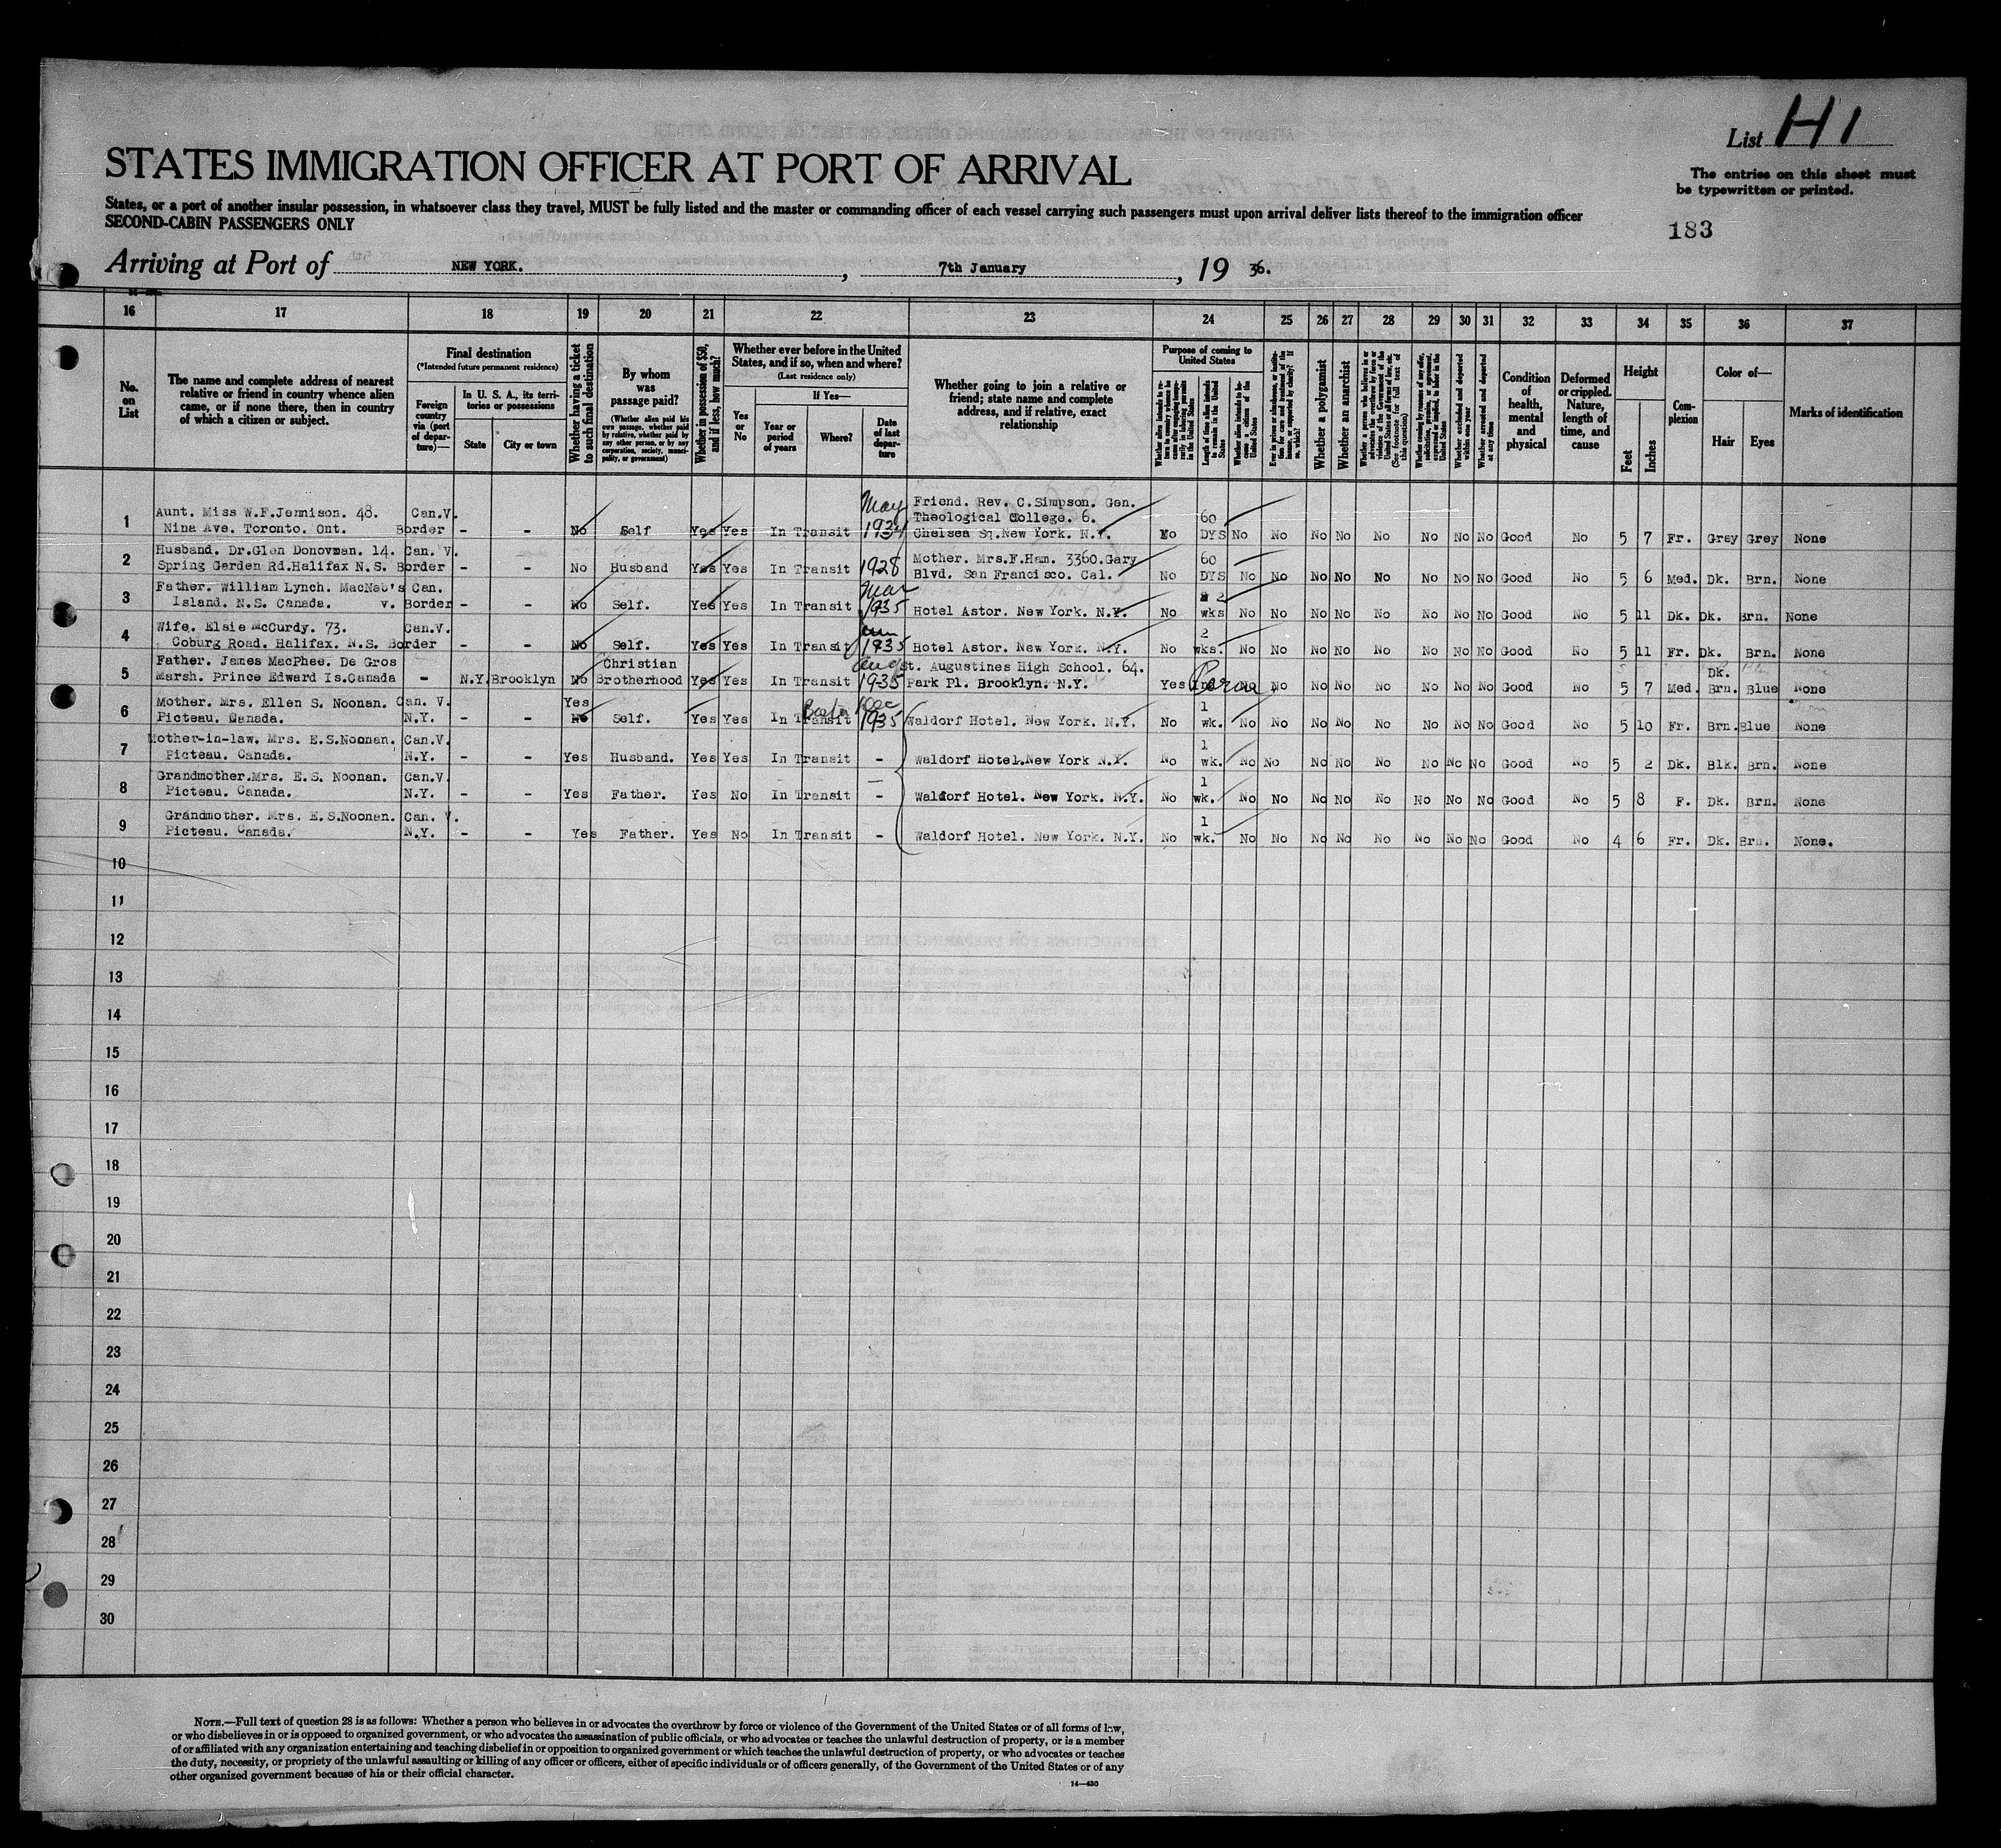 List H1
STATES IMMIGRATION OFFICER AT PORT OF ARRIVAL
The entries on this sheet must
be typewritten or printed.
States, or a port of another insular possession, in whatsoever class they travel, MUST be fully listed and the master or commanding officer of each vessel carrying such passengers must upon arrival deliver lists thereof to the immigration officer
SECOND-CABIN PASSENGERS ONLY
183
Arriving at Port of NEW YORK. , 7th January , 19 36.
16 17 18 19 20 21 22 23 24 25 26 27 28 29 30 31 32 33 34 35 36 37
No.
on
List
The name and complete address of nearest
relative or friend in country whence alien
came, or if none there, then in country
of which a citizen or subject.
Final destination
(*Intended future permanent residence)
Foreign
country
via (port
of depar-
ture)—
In U. S. A., its terri-
tories or possessions
State
City or town
Whether having a ticket
to such final destination
By whom
was
passage paid?
(Whether alien paid his
own passage, whether paid
by relative, whether paid by
any other person, or by any
corporation, society, munici-
pality, or government)
Whether in possession of $50,
and if less, how much?
Whether ever before in the United
States, and if so, when and where?
(Last residence only)
Yes
or
No
If Yes—
Year or
period
of years
Where?
Date
of last
depar-
ture
Whether going to join a relative or
friend; state name and complete
address, and if relative, exact
relationship
Purpose of coming to
United States
Length of time alien intends
to remain in the United
States
Whether a polygamist
Whether an anarchist
Whether excluded and deported
within one year
Whether arrested and deported
at any time
Condition
of
health,
mental
and
physical
Deformed
or crippled.
Nature,
length of
time, and
cause
Height
Feet
Inches
Com-
plexion
Color of—
Hair
Eyes
Marks of identification
1 Aunt. Miss W.F.Jennison. 48. Can.V. May Friend. Rev. C.Simpson. Gen.
Theological College. 6. 60
Nina Ave. Toronto. Ont. Border - - No Self Yes Yes In Transit 1934 Chelsea Sq.New York. N.Y. No DYS No No No No No No No No Good No 5 7 Fr. Grey Grey None
2 Husband. Dr.Glen Donovman. 14. Can. V. Mother. Mrs.F.Ham. 3360.Gary 60
Spring Garden Rd.Halifax N.S. Border - - No Husband Yes Yes In Transit 1928 Blvd. San Francisco. Cal. No DYS No No No No No No No No Good No 5 6 Med. Dk. Brn. None
3 Father. William Lynch. MacNab's Can. Mar 2
Island. N.S. Canada. v. Border - - No Self. Yes Yes In Transit 1935 Hotel Astor. New York. N.Y. No wks No No No No No No No No Good No 5 11 Dk. Dk. Brn. None
4 Wife. Elsie McCurdy. 73. Can.V. 2
Coburg Road. Halifax. N.S. Border - - No Self. Yes Yes In Transit 1935 Hotel Astor. New York. N.Y. No wks. No No No No No No No No Good No 5 11 Fr. Dk. Brn. None
5 Father. James MacPhee. De Gros Christian Aug St. Augustines High School. 64. Dk.
Marsh. Prince Edward Is.Canada - N.Y. Brooklyn No Brotherhood Yes Yes In Transit 1935 Park Pl. Brooklyn. N.Y. Yes No No No No No No No No Good No 5 7 Med. Brn. Blue None
6 Mother. Mrs. Ellen S. Noonan. Can. V. Yes Dec 1
Picteau. Canada. N.Y. - - No Self. Yes Yes In Transit 1935 Waldorf Hotel. New York. N.Y. No wk. No No No No No No No No Good No 5 10 Fr. Brn. Blue None
7 Mother-in-law. Mrs. E.S.Noonan. Can.V. 1
Picteau. Canada. N.Y. - - Yes Husband. Yes Yes In Transit - Waldorf Hotel.New York N.Y. No wk. No No No No No No No No Good No 5 2 Dk. Blk. Brn. None
8 Grandmother.Mrs. E.S. Noonan. Can.V. 1
Picteau. Canada. N.Y. - - Yes Father. Yes No In Transit - Waldorf Hotel. New York. N.Y. No wk. No No No No No No No No Good No 5 8 F. Dk. Brn. None
9 Grandmother. Mrs. E.S.Noonan. Can. V. 1
Picteau. Canada. N.Y. - - Yes Father. Yes No In Transit - Waldorf Hotel. New York. N.Y. No wk. No No No No No No No No Good No 4 6 Fr. Dk. Brn. None.
10
11
12
13
14
15
16
17
18
19
20
21
22
23
24
25
26
27
28
29
30
NOTE.—Full text of question 28 is as follows: Whether a person who believes in or advocates the overthrow by force or violence of the Government of the United States or of all forms of law,
or who disbelieves in or is opposed to organized government, or who advocates the assassination of public officials, or who advocates or teaches the unlawful destruction of property, or is a member
of or affiliated with any organization entertaining and teaching disbelief in or opposition to organized government or which teaches the unlawful destruction of property, or who advocates or teaches
the duty, necessity, or propriety of the unlawful assaulting or killing of any officer or officers, either of specific individuals or of officers generally, of the Government of the United States or of any
other organized government because of his or their official character.
14—430